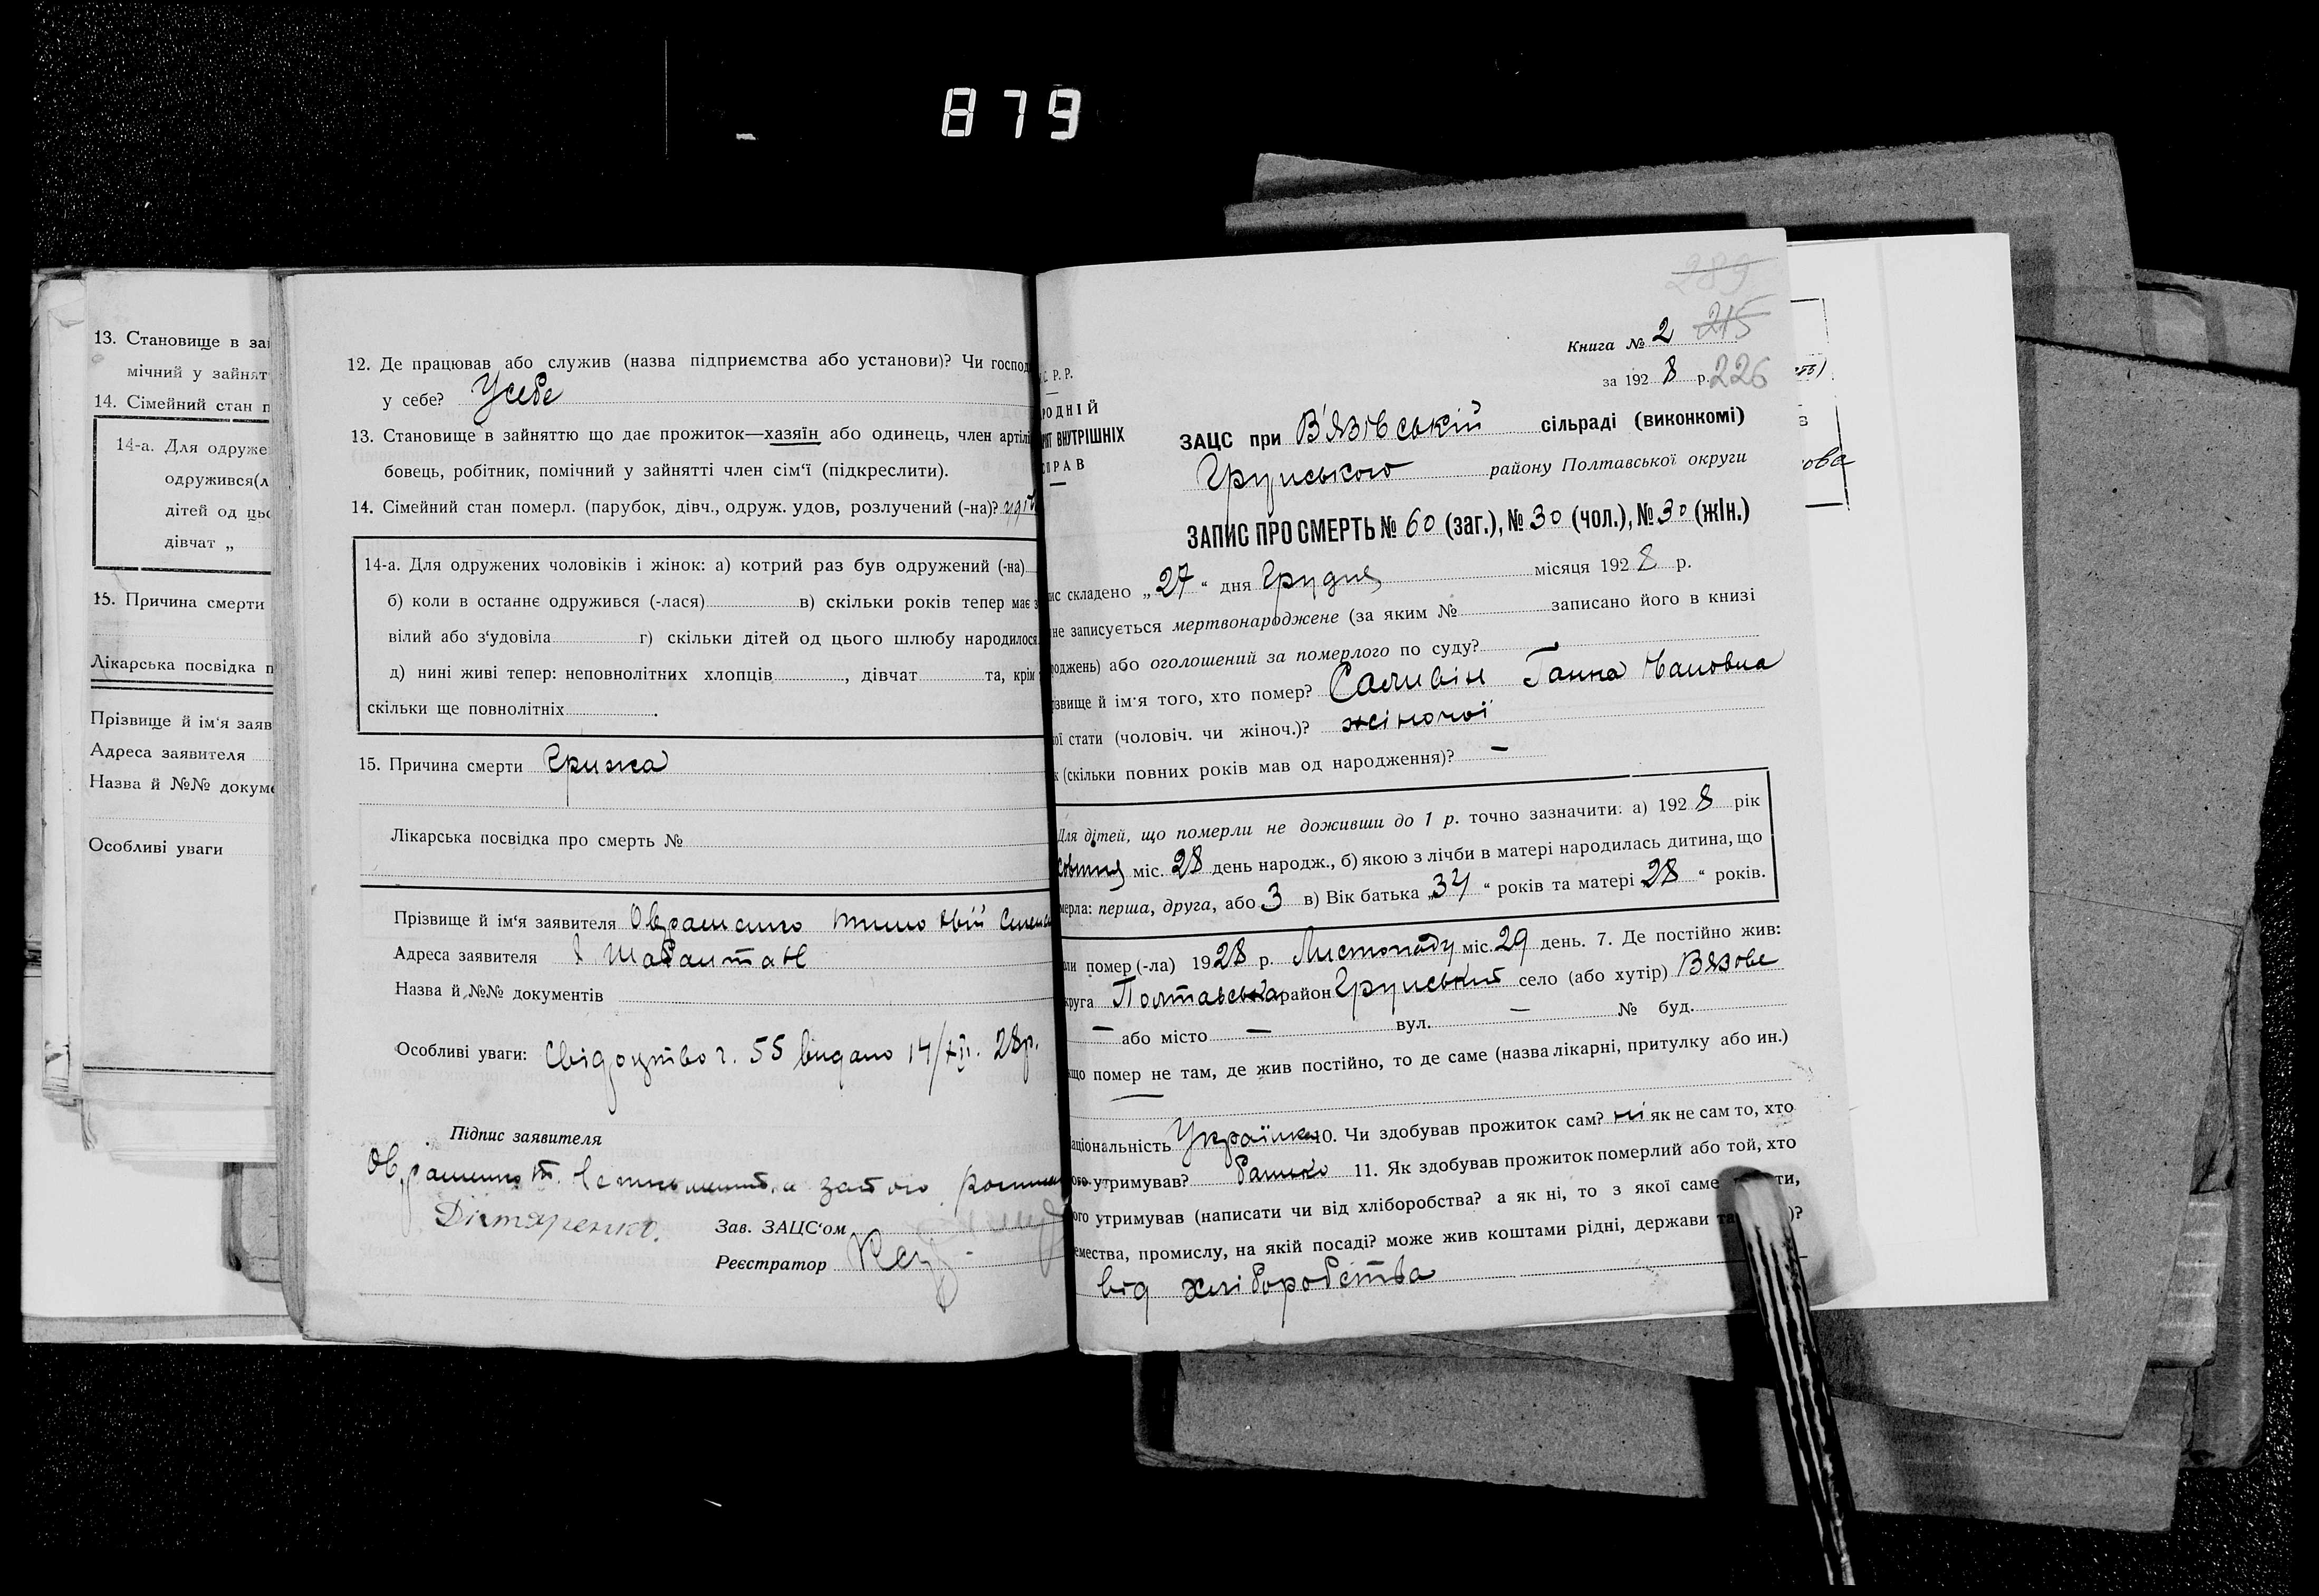 879
13. Становище в за
мічний у зайнят
14. Сімейний стан п
14-а. Для одруже
одружився(л
дітей од цьо
дівчат „
15. Причина смерти
Лікарська посвідка п
Прізвище й ім'я заяв
Адреса заявителя
Назва й №№ докуме
Особливі уваги
12. Де працював або служив (назва підприємства або установи)? Чи господ
у себе? У себе
13. Становище в зайняттю що дає прожиток—хазяїн або одинець, член артілі
бовець, робітник, помічний у зайнятті член сім'ї (підкреслити).
14. Сімейний стан померл. (парубок, дівч., одруж. удов, розлучений (-на)?
14-а. Для одружених чоловіків і жінок: а) котрий раз був одружений (-на)
б) коли в останнє одружився (-лася) в) скільки років тепер має з
вілий або з'удовіла г) скільки дітей од цього шлюбу народилося
д) нині живі тепер: неповнолітних хлопців, дівчат та, крім
скільки ще повнолітніх.
15. Причина смерти Грижа
Лікарська посвідка про смерть №
Прізвище й ім'я заявителя
Адреса заявителя
Назва й №№ документів
Особливі уваги: Свідоцтво ч. 55 видано 14/XII. 28р.
Підпис заявителя
Дігтяренко.
Зав. ЗАЦС'ом
Реєстратор
289
Книга № 2 215
за 1928 р. 226
С. Р. Р.
РОДНІЙ
РІЯТ ВНУТРІШНІХ
СПРАВ
ЗАЦС при В'язівській сільраді (виконкомі)
Грунського району Полтавської округи
ЗАПИС ПРО СМЕРТЬ № 60 (заг.), № 30 (чол.), № 30 (жін.)
ис складено „27“ дня Грудня місяця 1928 р.
не записується мертвонароджене (за яким № записано його в книзі
роджень) або оголошений за померлого по суду?
ізвище й ім'я того, хто помер? Ганна
ої стати (чоловіч. чи жіноч.)? жіночої
к (скільки повних років мав од народження)? —
Для дітей, що померли не доживши до 1 р. точно зазначити: а) 1928 рік
овтня міс. 28 день народж., б) якою з лічби в матері народилась дитина, що
мерла: перша, друга, або 3 в) Вік батька „34“ років та матері 28 “ років.
ли помер (-ла) 1928 р. Листопаду міс. 29 день. 7. Де постійно жив:
круга Полтавська район Грунський село (або хутір) Вязове
— або місто — вул. — № буд.
кщо помер не там, де жив постійно, то де саме (назва лікарні, притулку або ин.)
аціональність Українка 10. Чи здобував прожиток сам? ні як не сам то, хто
ого утримував? Батько 11. Як здобував прожиток померлий або той, хто
ого утримував (написати чи від хліборобства? а як ні, то з якої саме ти,
емества, промислу, на якій посаді? може жив коштами рідні, держави та )?
від хліборобства